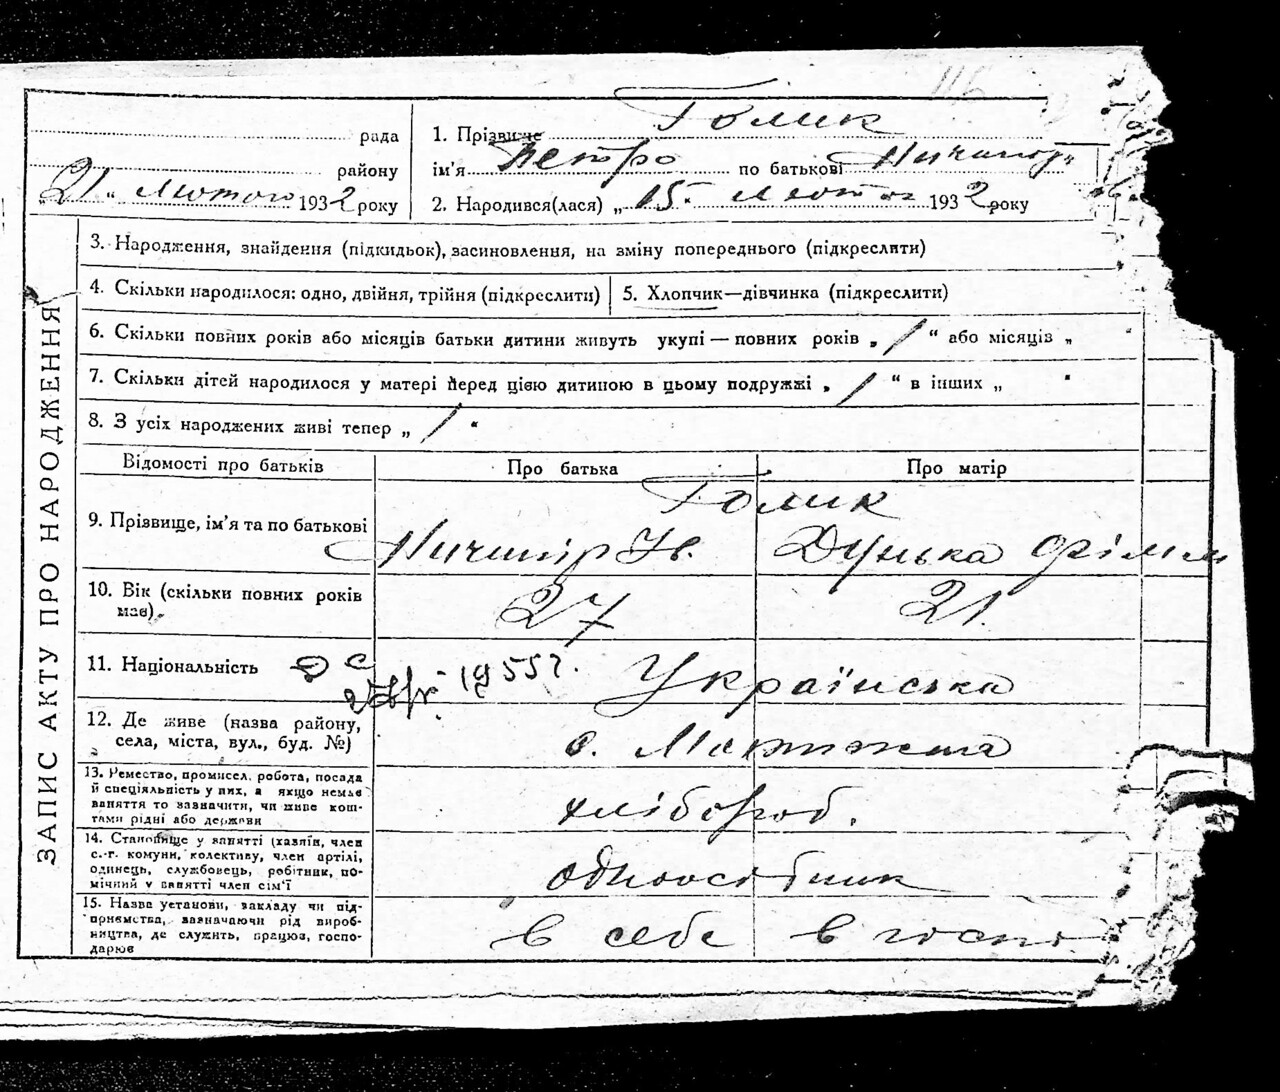 116
рада
району
21 " Лютого 1932 року
1. Прізвище Голик
ім'я Петро по батькові Ничипор
2. Народився(лася) „ 15 " Лютог 1932 року
ЗАПИС АКТУ ПРО НАРОДЖЕННЯ
3. Народження, знайдення (підкидьок), засиновлення, на зміну попереднього (підкреслити)
4. Скільки народилося: одно, двійня, трійня (підкреслити)
5. Хлопчик—дівчинка (підкреслити)
6. Скільки повних років або місяців батьки дитини живуть укупі — повних років „ / “ або місяців „ “
7. Скільки дітей народилося у матері перед цією дитиною в цьому подружжі „ / “ в інших „ “
8. З усіх народжених живі тепер „ / “
Відомості про батьків Про батька Про матір
Голик
9. Прізвище, ім'я та по батькові Ничипір Ів. Дунька
10. Вік (скільки повних років
має). 27 21.
11. Національність 1955 г. Українська
12. Де живе (назва району,
села, міста, вул., буд. №) с.
13. Ремество, промисел, робота, посада
й спеціяльність у них, а якщо немає
заняття то зазначити, чи живе кош-
тами рідні або держави
хлібороб.
14. Становище у занятті (хазяїн, член
с.-г. комуни, колективу, член артілі,
одинець, службовець, робітник, по-
мічний у занятті член сім'ї
одноосібник
15. Назва установи, закладу чи під-
приємства, зазначаючи рід вироб-
ництва, де служить, працює, госпо-
дарює
в себе в госпо